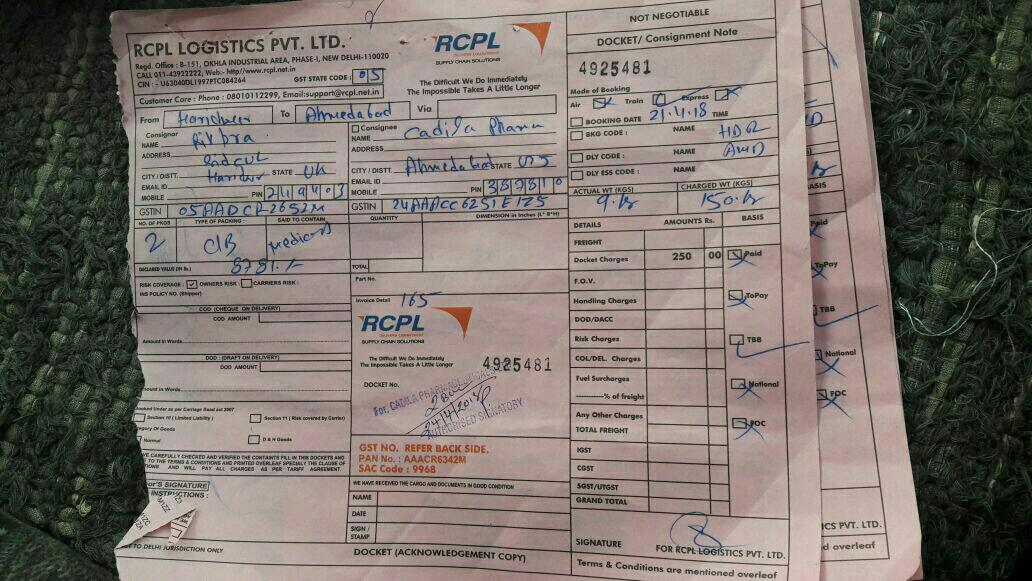 RCPL LOGISTICS PVT. LTD.
Regd. Office : B-151, OKHLA INDUSTRIAL AREA, PHASE-I, NEW DELHI-110020
CALL 011-43922222, Web:- http//www.rcpl.net.in
CIN : - U63040DL1997PTC084264
GST STATE CODE : 05
Customer Care : Phone : 08010112299, Email:support@rcpl.net.in
RCPL
SUPPLY CHAIN SOLUTIONS
The Difficult We Do Immediately
The Impossible Takes A Little Longer
NOT NEGOTIABLE
DOCKET/ Consignment Note
4925481
Mode of Booking
Air Train Express
BOOKING DATE 21.4.18 TIME
BKG CODE : NAME HDR
DLY CODE : NAME AMD
DLY ESS CODE : NAME
ACTUAL WT (KGS) CHARGED WT (KGS)
9.kg 150.kg
From Haridwar To Ahmedabad Via
Consignor
NAME
ADDRESS
CITY / DISTT. Haridwar STATE UK
EMAIL ID
MOBILE PIN 249403
GSTIN 05AADCR2652M
Consignee
NAME Cadila Pharma
ADDRESS
CITY / DISTT. Ahmedabad STATE
EMAIL ID
MOBILE PIN 387810
GSTIN 24AAACC6251E1Z5
NO. OF PKGS TYPE OF PACKING : SAID TO CONTAIN QUANTITY DIMENSION in Inches (L* B*H)
2 C/B
DECLARED VALUE (IN Rs.) 8781./-
TOTAL
RISK COVERAGE : OWNERS RISK : CARRIERS RISK :
INS POLICY NO. (Shipper)
Part No.
COD (CHEQUE ON DELIVERY)
COD AMOUNT
Amount in Words
DOD : (DRAFT ON DELIVERY)
DOD AMOUNT
mount in Words
ooked Under as per Carriage Road Act 2007
Section 10 ( Limited Liability ) Section 11 ( Risk covered by Carrier)
egory Of Goods
Normal D & H Goods
VE CAREFULLY CHECKED AND VERIFIED THE CONTAINTS FILL IN THIS DOCKETS AND
TO THE TERMS & CONDITIONS AND PRINTED OVERLEAF SPECIALLY THE CLAUSE OF
TIONS AND WILL PAY ALL CHARGES AS PER TARIFF AGREEMENT.
or'S SIGNATURE
INSTRUCTIONS :
TO DELHI JURISDICTION ONLY
Invoice Detail 165
RCPL
DELIVERS COMMITMENT
SUPPLY CHAIN SOLUTIONS
The Difficult We Do Immediately
The Impossible Takes A Little Longer
4925481
DOCKET No.
For, CADILA PHARMACEUTICALS
24/4/2018
AUTHORISED SIGNATORY
GST NO. REFER BACK SIDE.
PAN No. : AAACR6342M
SAC Code : 9968
WE HAVE RECEIVED THE CARGO AND DOCUMENTS IN GOOD CONDITION
NAME
DATE
SIGN /
STAMP
DOCKET (ACKNOWLEDGEMENT COPY)
DETAILS AMOUNTS Rs. BASIS
FREIGHT
Docket Charges 250 00
F.O.V.
Handling Charges
DOD/DACC
Risk Charges
COL/DEL. Charges
Fuel Surcharges
% of freight
Any Other Charges
TOTAL FREIGHT
IGST
CGST
SGST/UTGST
GRAND TOTAL
Paid
ToPay
TBB
National
FOC
SIGNATURE FOR RCPL LOGISTICS PVT. LTD.
Terms & Conditions are mentioned overleaf
ASIS
aid
ToPay
TBB
National
FOC
ICS PVT. LTD.
overleaf